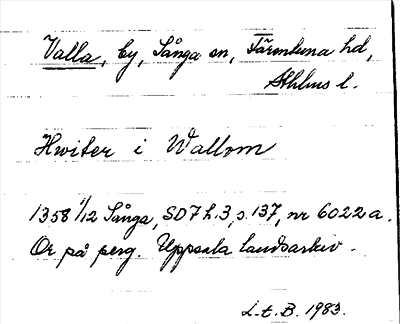 Valla, by, Sånga sn, Färentuna hd,
Sthlms l.
Hwiter i Wallom
1358 1/12 Sånga, SD7 h.3, s.137, nr 6022a.
Or på perg. Uppsala landsarkiv.
L.t.B. 1983.